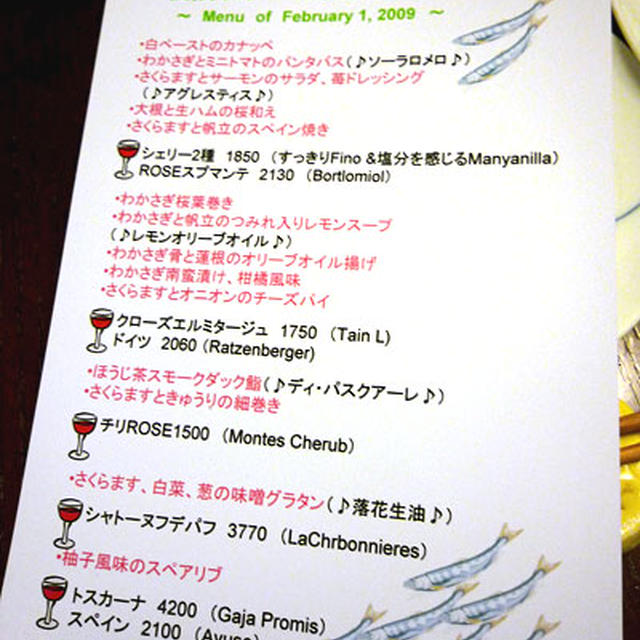 ～ Menu of February 1, 2009 ～
・白ペーストのカナッペ
・わかさぎとミニトマトのパンタパス(♪ソーラロメロ♪)
・さくらますとサーモンのサラダ、苺ドレッシング
(♪アグレスティス♪)
・大根と生ハムの桜和え
・さくらますと帆立のスペイン焼き
シェリー2種 1850 (すっきりFino &塩分を感じるManyanilla)
ROSEスプマンテ 2130 (Bortlomiol)
・わかさぎ桜葉巻き
・わかさぎと帆立のつみれ入りレモンスープ
(♪レモンオリーブオイル♪)
・わかさぎ骨と蓮根のオリーブオイル揚げ
・わかさぎ南蛮漬け、柑橘風味
・さくらますとオニオンのチーズパイ
クローズエルミタージュ 1750 (Tain L)
ドイツ 2060 (Ratzenberger)
・ほうじ茶スモークダック鮨(♪ディ・パスクアーレ♪)
・さくらますときゅうりの細巻き
チリROSE1500 (Montes Cherub)
・さくらます、白菜、葱の味噌グラタン(♪落花生油♪)
シャトーヌフデパフ 3770 (LaChrbonnieres)
・柚子風味のスペアリブ
トスカーナ 4200 (Gaja Promis)
スペイン 2100